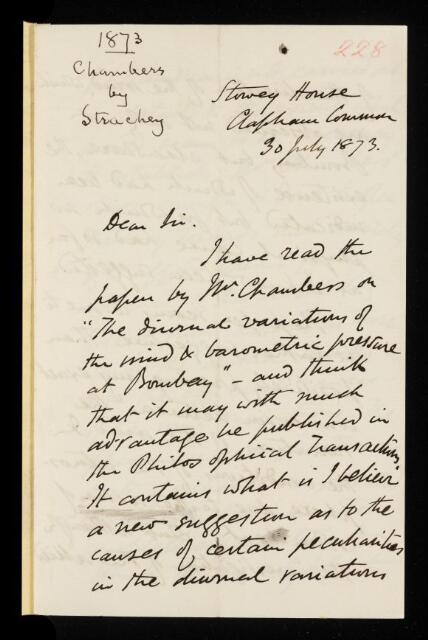 1873
228
Chambers
by
Strachey
Stowey House
Clapham Common
30 July 1873.
Dear Sir.
I have read the
paper by Mr. Chambers on
"The diurnal variations of
the wind & barometric pressure
at Bombay" – and think
that it may with much
advantage be published in
the Philosophical Transactions.
It contains what is I believe
a new suggestion as to the
causes of certain peculiarities
in the diurnal variations